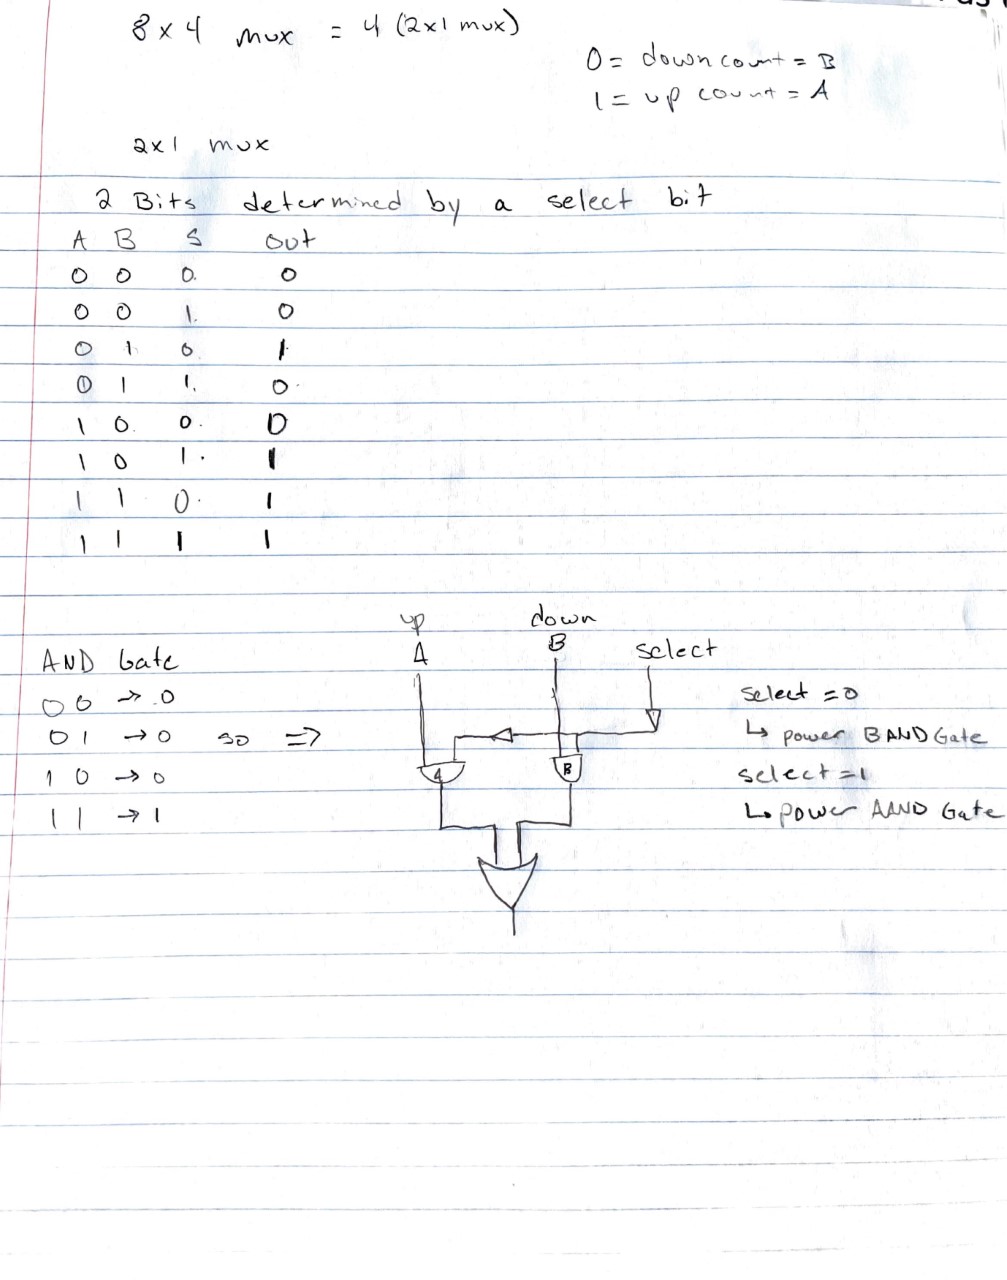 8 x 4 mux = 4 (2x1 mux)
0 = down count = B
1 = up count = A
2x1 mux
2 Bits determined by a select bit
A B S out
0 0 0. 0
0 0 1. 0
0 1 0. 1
0 1 1. 0.
1 0. 0. 0
1 0 1. 1
1 1 0. 1
1 1 1 1
up down
A B select
AND Gate
0 0 → .0
0 1 → 0 so ⇒
1 0 → 0
1 1 → 1
A B
select = 0
↳ power B AND Gate
select = 1
↳ power A AND Gate